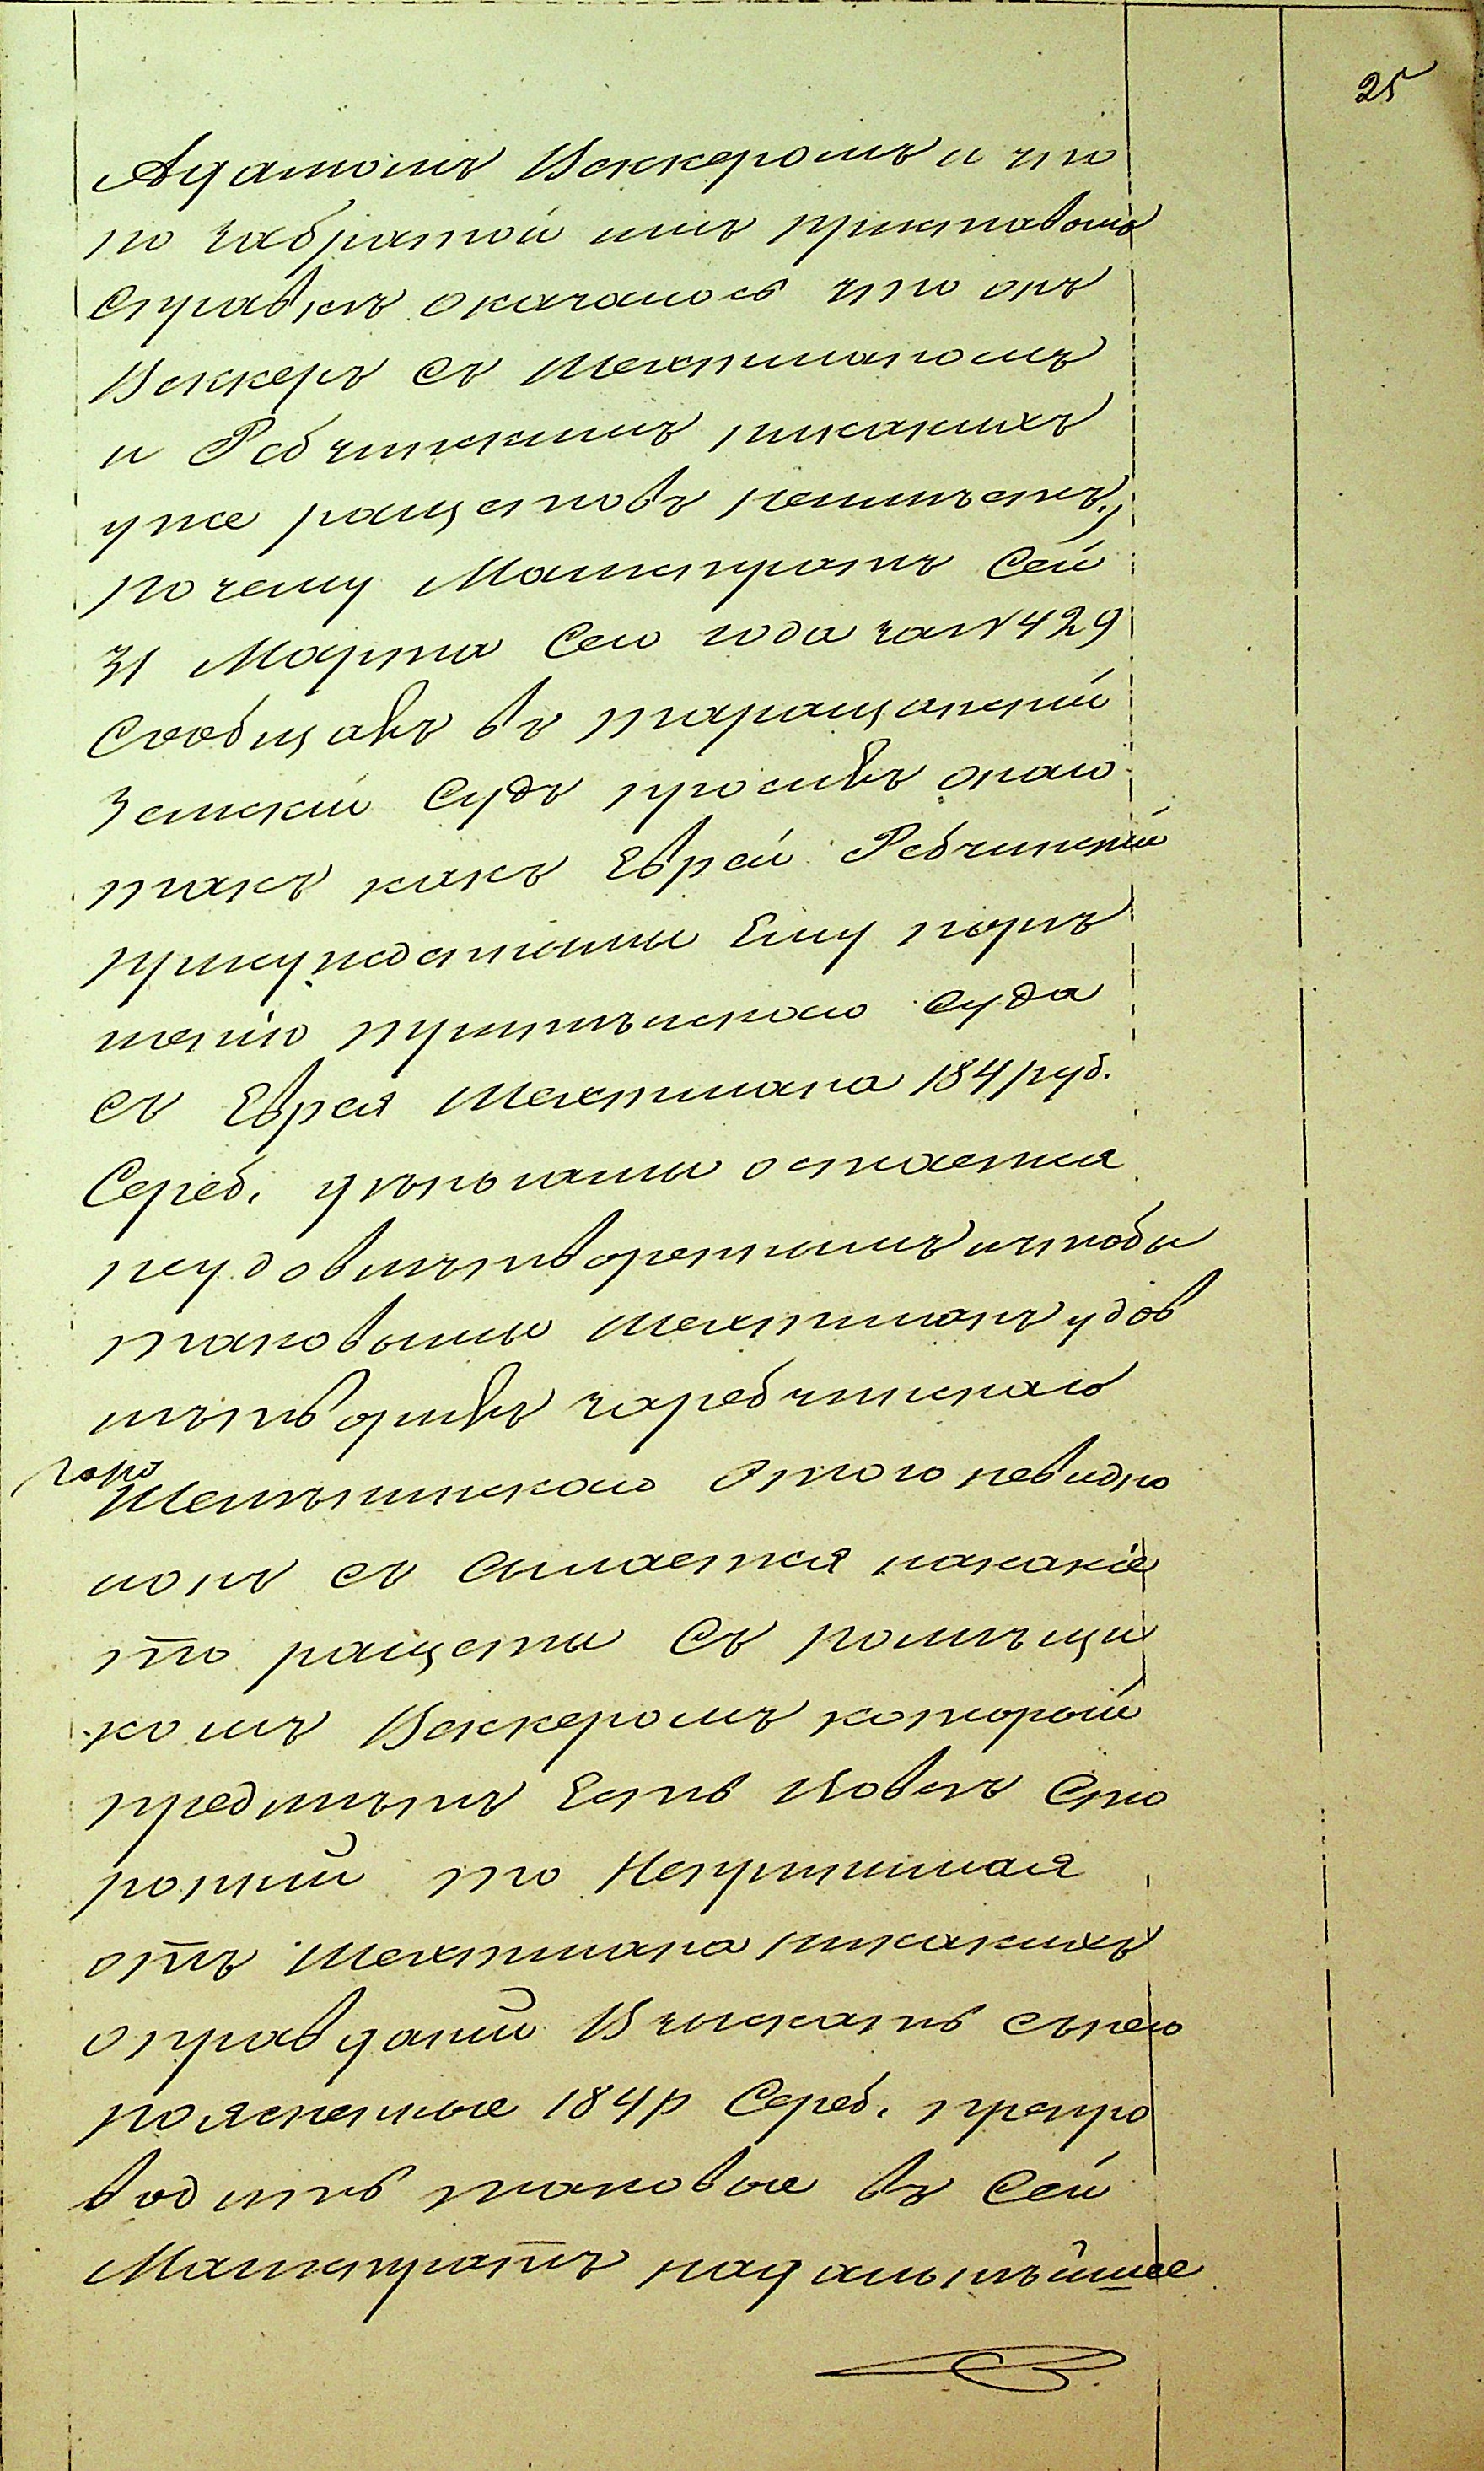 25
Адамомъ Беккеромъ и что
по забратой имъ приставомъ
справкѣ оказалось что онъ
Беккеръ съ Шехтманомъ
и Ребчинскимъ никакихъ
уже ращетовъ неимѣетъ,
почему Магистратъ Сей
31 Марта Сего года за N 429
Сообщавъ въ таращанскій
Земскій Судъ просивъ онаго
такъ какъ Еврей Ребчинскій
присужденными Ему по рѣ
шенію третейского Суда
съ Еврея Шехтмана 184 руб.
Сереб. деньгами остается
неудовлетвореннымъ и чтобы
таковыми Шехтманъ удов
летворивъ Заребчинскаго
Шехтмана этого невидно
ионъ съ Сылается накакіе
то ращеты Съ помѣщи
комъ Беккеромъ который
предмѣтъ Есть Вовсѣ Сто
ронній то Непринимая
отъ Шехтмана никакихъ
оправданій Взыскать снего
поясненные 184 р Сереб. препро
водить таковые въ Сей
Магистратъ надальнѣйшее